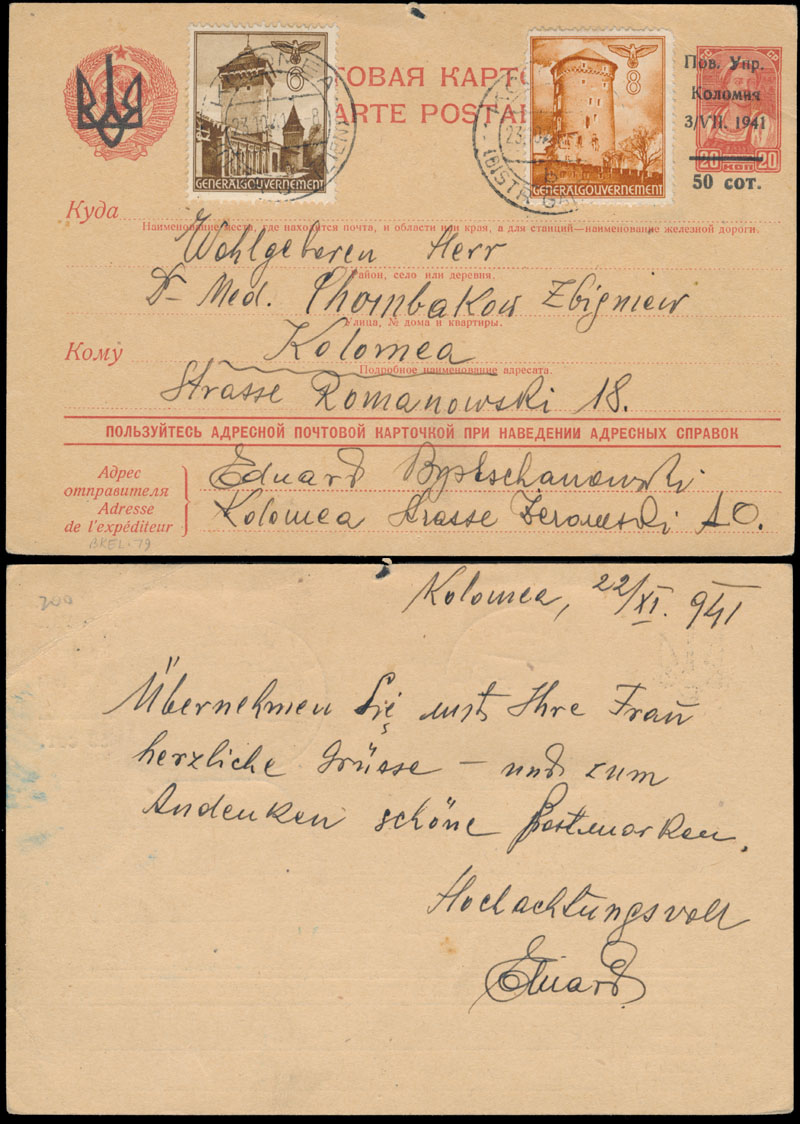 ТОВАЯ КАРТО
CARTE POSTAL
6
GENERALGOUVERNEMENT
8
GENERALGOUVERNEMENT
Пов. Упр.
Коломия
3/VII. 1941
20 КОП 20
50 сот.
Куда
Наименование места, где находится почта, и области или края, а для станций—наименование железной дороги.
Wohlgeboren Herr
Район, село или деревня.
Dr Med. Chombakow Zbigniew
Улица, № дома и квартиры.
Кому
Kolomea
Подробное наименование адресата.
Strasse Romanowski 18.
ПОЛЬЗУЙТЕСЬ АДРЕСНОЙ ПОЧТОВОЙ КАРТОЧКОЙ ПРИ НАВЕДЕНИИ АДРЕСНЫХ СПРАВОК
Адрес
отправителя
Adresse
de l'expéditeur
Eduard
Kolomea Strasse Zeromski 10.
BREL-79
200
Kolomea, 22/XI. 941
Übernehmen Sie mit Ihre Frau
herzliche Grüsse — und zum
Andenken schöne Postmarken.
Hochachtungsvoll
Eduard